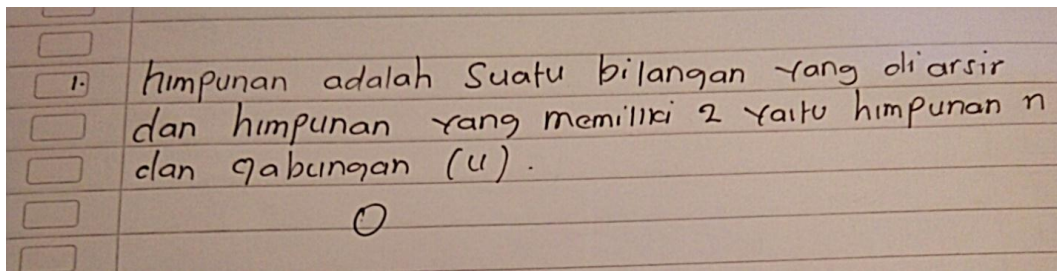 1. himpunan adalah Suatu bilangan yang di arsir
dan himpunan yang memiliki 2 yaitu himpunan n
dan gabungan (u).
O